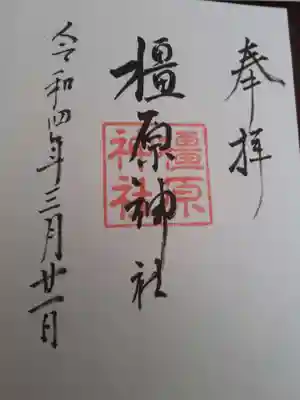 奉拝
橿原神社
橿原
神社
令和四年三月廿一日